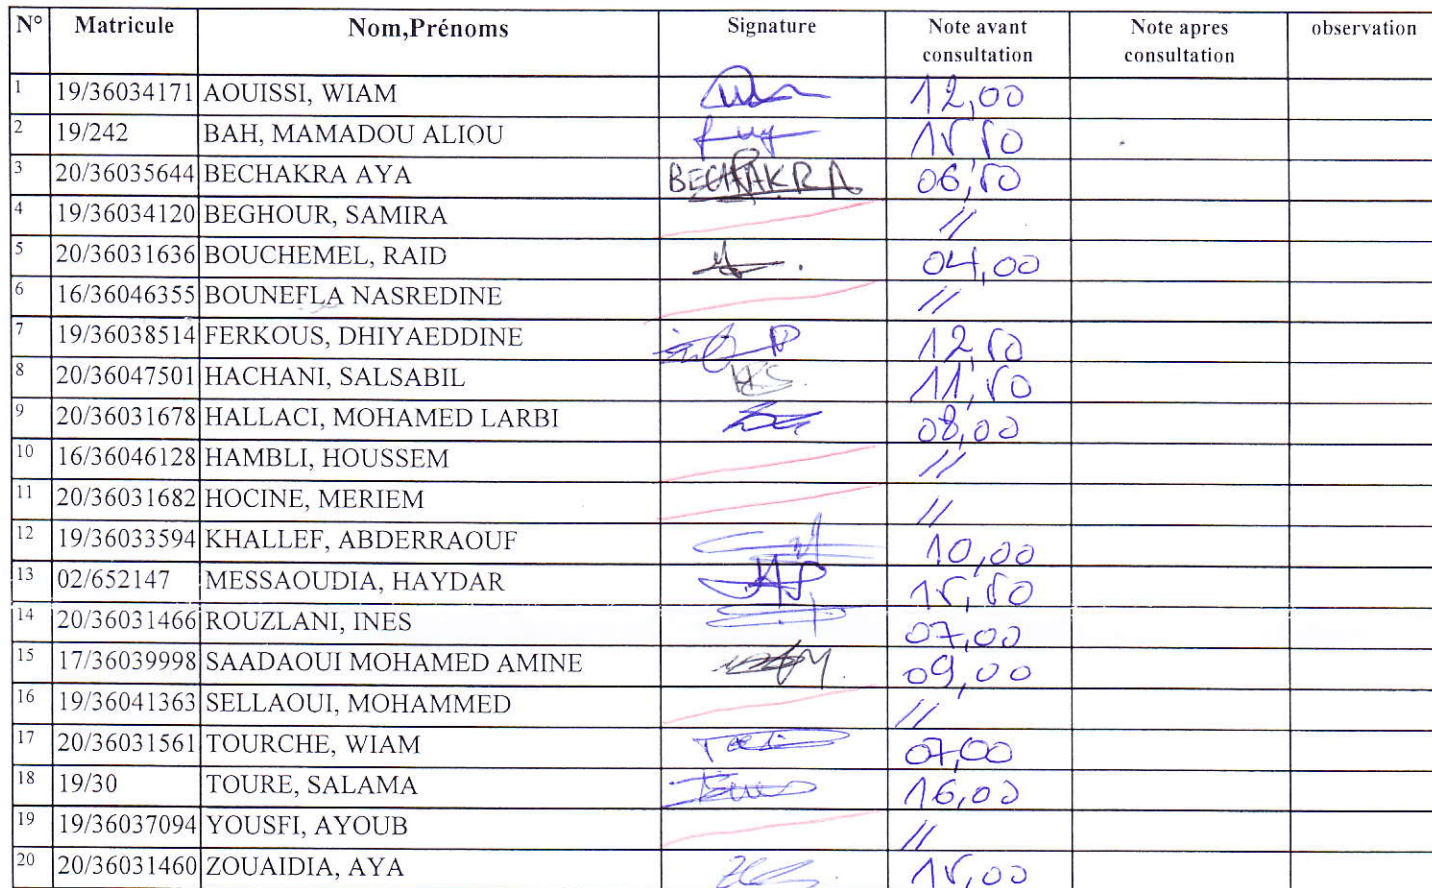 N° Matricule Nom,Prénoms Signature Note avant consultation Note apres consultation observation
1 19/36034171 AOUISSI, WIAM 12,00
2 19/242 BAH, MAMADOU ALIOU 15,50
3 20/36035644 BECHAKRA AYA BECHAKRA 06,50
4 19/36034120 BEGHOUR, SAMIRA //
5 20/36031636 BOUCHEMEL, RAID 04,00
6 16/36046355 BOUNEFLA NASREDINE //
7 19/36038514 FERKOUS, DHIYAEDDINE 12,50
8 20/36047501 HACHANI, SALSABIL HS. 11,50
9 20/36031678 HALLACI, MOHAMED LARBI 08,00
10 16/36046128 HAMBLI, HOUSSEM //
11 20/36031682 HOCINE, MERIEM //
12 19/36033594 KHALLEF, ABDERRAOUF 10,00
13 02/652147 MESSAOUDIA, HAYDAR 15,50
14 20/36031466 ROUZLANI, INES 07,00
15 17/36039998 SAADAOUI MOHAMED AMINE 09,00
16 19/36041363 SELLAOUI, MOHAMMED //
17 20/36031561 TOURCHE, WIAM 07,00
18 19/30 TOURE, SALAMA 16,00
19 19/36037094 YOUSFI, AYOUB //
20 20/36031460 ZOUAIDIA, AYA 15,00